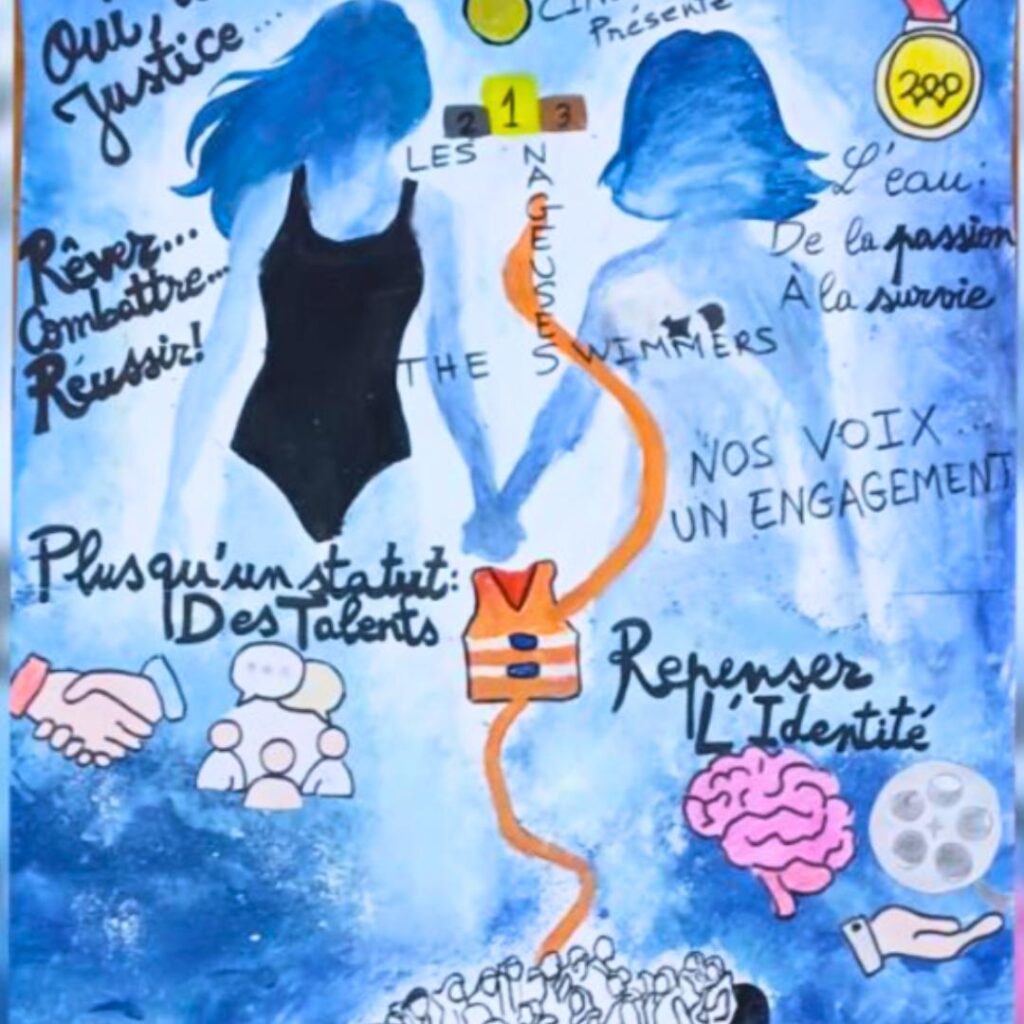 Oui, 
Justice...
Présente
2 1 3
LES
NAGEUSES
200
L'eau:
De la passion
À la survie
Rêver...
Combattre...
Réussir!
THE SWIMMERS
NOS VOIX...
UN ENGAGEMENT
Plus qu'un statut:
Des Talents
Repenser
L'Identité